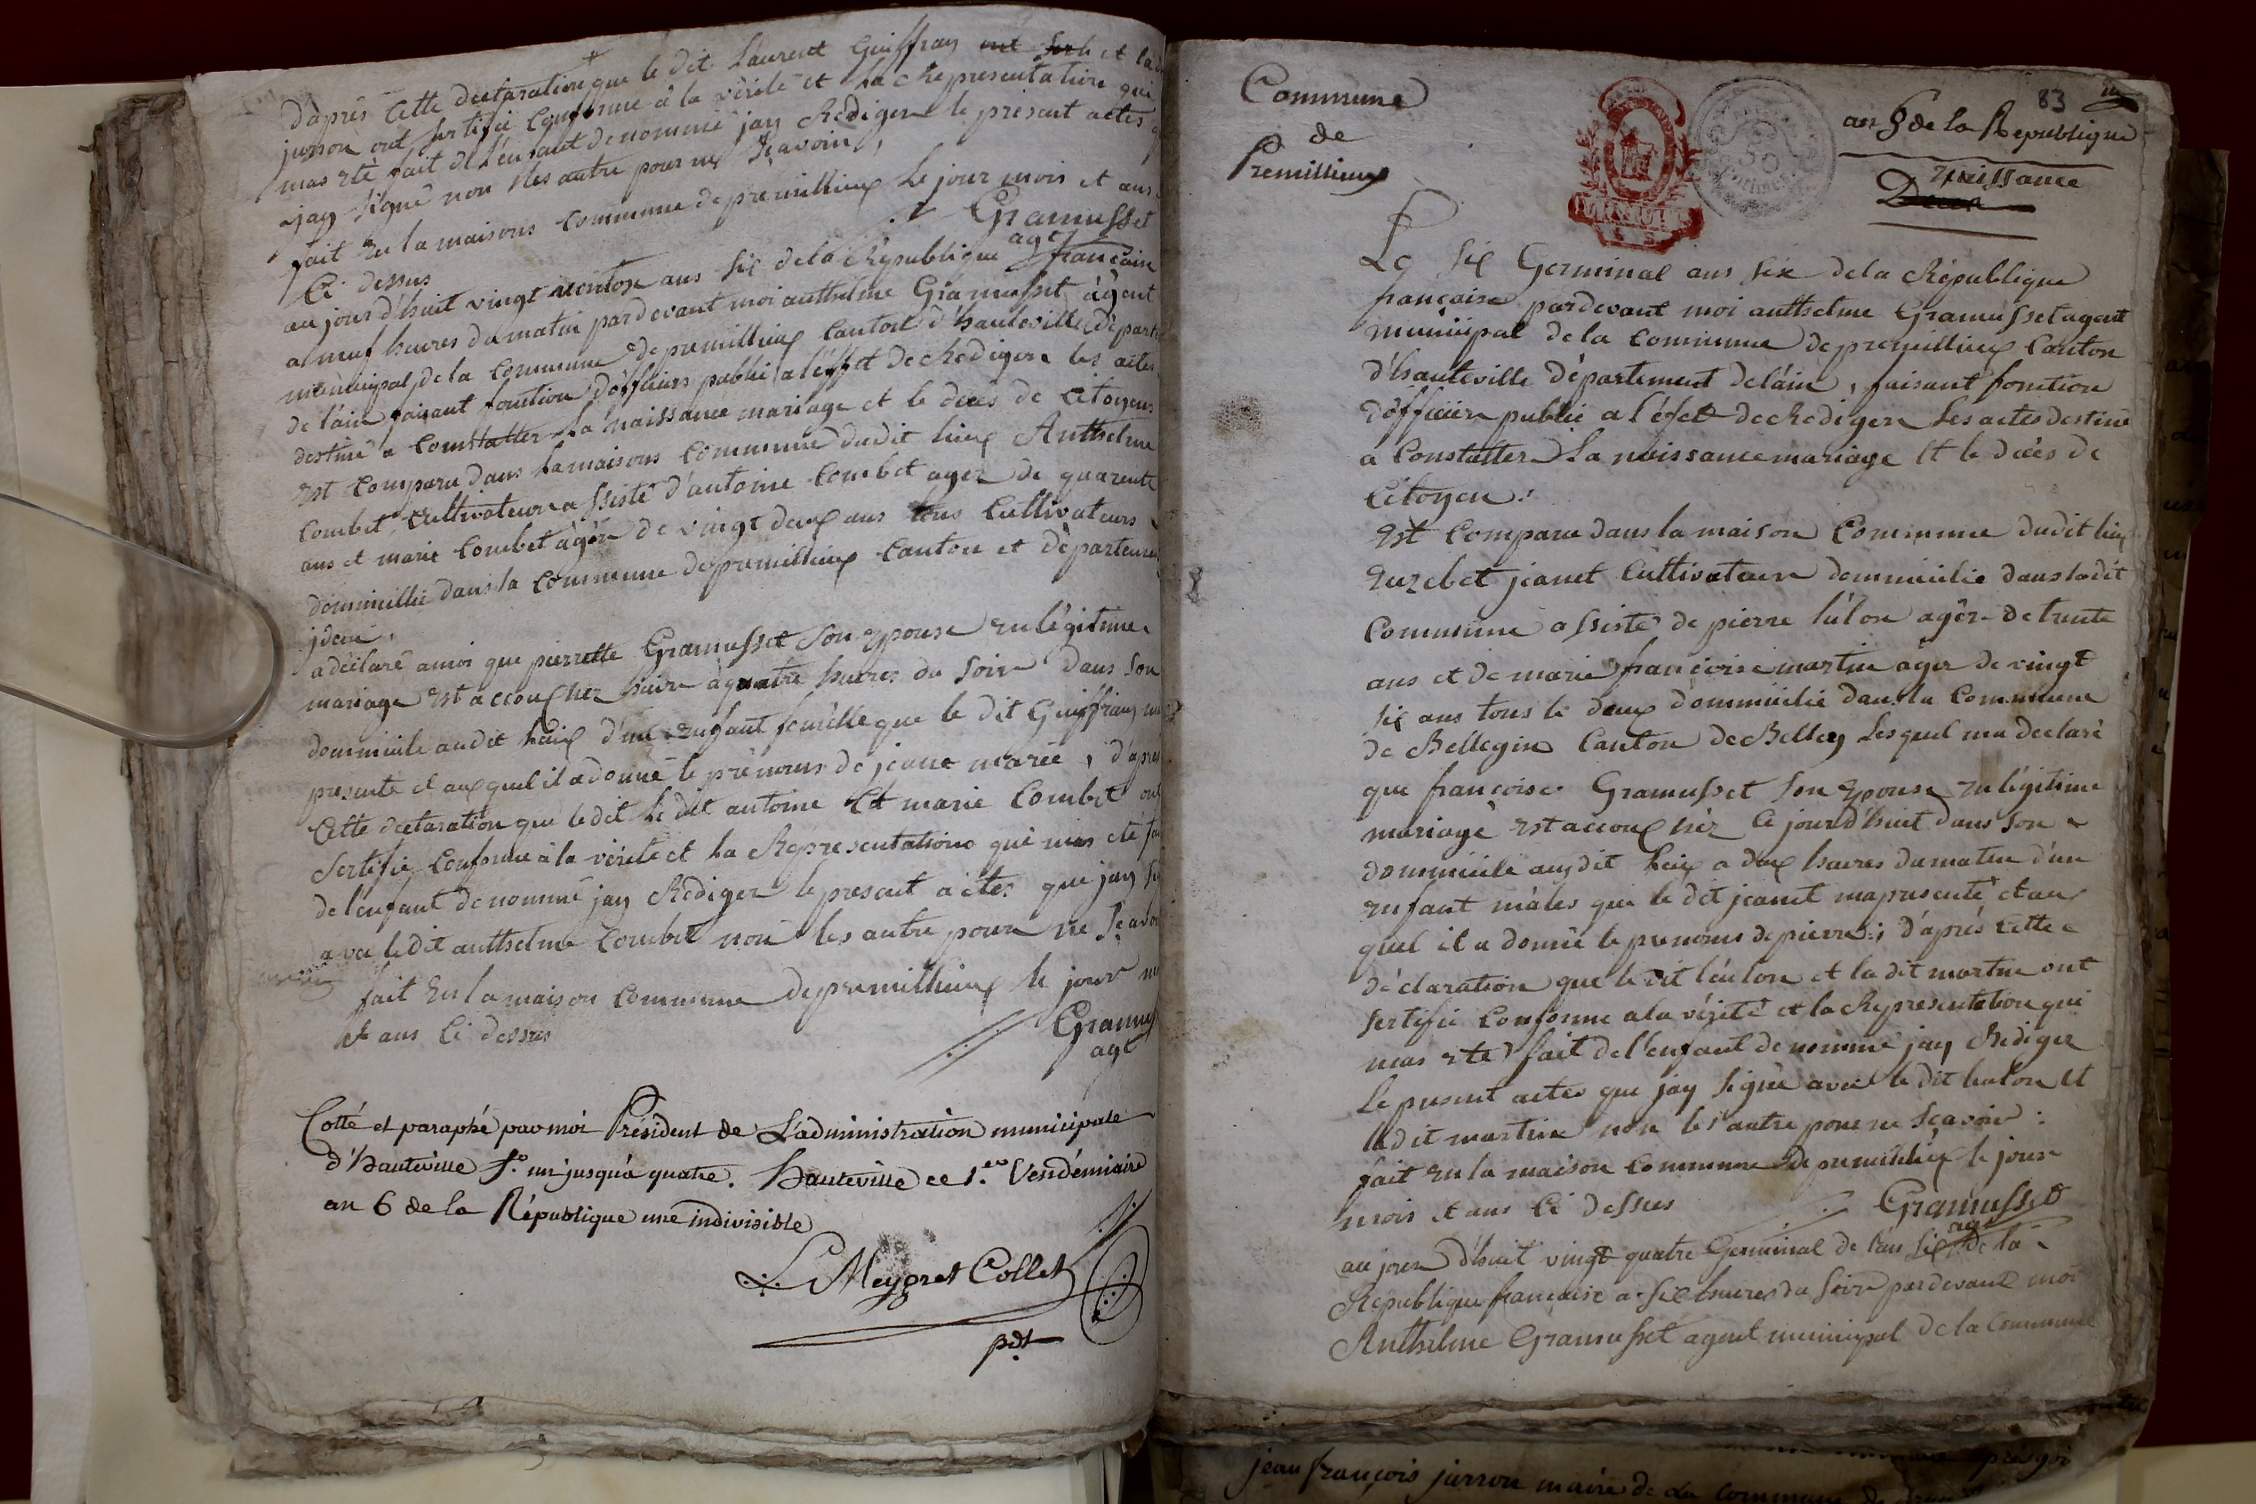 d'après Cette declaration que le dit Laurent Guiffray et la
jurron ont sertifié Conforme à la vérité et La Representation qui
mas eté fait de l'enfant denommé jay Rediger le présent actes
jay signé non les autre pour ne sçavoir,
fait en la maisons Commune de premillieux Le jour mois et ans
Ci dessus
Gramusset
agt
au jourd'huit vingt ventose ans six de la République francaise
a neuf heures du matin pardevant moi anthelme Gramusset agent
municipal de la Commune de premillieux Canton d'hauteville départe
de l'ain faisant fonction d'officiers public a l'effet de Rediger les actes
destiné a Constatter La naissance mariage et le décès de Citoyens
est Comparu dans La maisons Commune dudit lieux Anthelme
Combet Cultivateur assisté d'antoine Combet ager de quarente
ans et marie Combet âger de vingt deux ans tous Cultivateurs
domicillié dans la Commune de premillieux Canton et départemen
jdem,
a déclaré a moi que pierrette Gramusset son epouse en légitime
mariage est accouchez hière à quatre heures du soire dans son
dommicile audit lieux d'un enfant femelle que le dit Guiffray ma
presenté et auxquel il a donné le prénoms de jeane marie, d'après
Cette declaration que le dit Le dit antoine Et marie Combet ont
sertifié Conforme à la vérité et La Representations qui mas eté fai
de l'enfant denommé jay Rediger le present actes que jay si
avec le dit anthelme Combet non les autre pour ne sçavoi
fait en la maison Commune de premillieux le jour m
et ans Ci dessus
Gramus
agt
Cotté et paraphé par moi Président de L'administration municipale
d'hauteville f.o un jusqu'à quatre. hauteville ce 1.er Vendémiaire
an 6 de la République une indivisible
L Meygret Collet
pdt
Commune
de
Premillieux
83
an 6 de la Republique
Naissance
Deces
Le six Germinal ans six de la République
française pardevant moi anthelme Gramusset agent
municipal de la Commune de premillieux Canton
d'hauteville département de l'ain, faisant fonction
d'officier public a l'éfet de Rediger Les actes destiné
a Constatter La naissance mariage Et le décès de
Citoyen:
Est Comparu dans la maison Commune dudit lieux
Euzebet jeanet Cultivateur dommicilié dans la dit
Commune assisté de pierre lulon âger de trente
ans et de marie françoise martin âger de vingt
six ans tous le deux dommicilié dans la Commune
de Bellegin Canton de Belley Lesquel ma declaré
que françoise Gramusset son epouse en légitime
mariage est accouchéz Ce jourd'huit dans son
dommicile audit lieux a deux heures du matin d'un
enfant mâles que le dit jeanet ma presenté et au
quel il a donné le prenoms de pierre; d'après Cette
déclaration que le dit lulon et la dit martin ont
sertifié Conforme a la vérité et la Representation qui
mas eté fait de l'enfant denommé jay Rediger
Le present actes que jay signé avec le dit lulon Et
ladit martin non les autre pour ne sçavoir:
fait en la maison Commune de premillieux le jour
mois et ans Ci dessus
Gramusset
agt
au jour d'huit vingt quatre Germinal de l'an six de la
République francaise a six heures du soire pardevant moi
Anthelme Gramusset agent municipal de la Commune
jean françois jurron maire de La Commune de